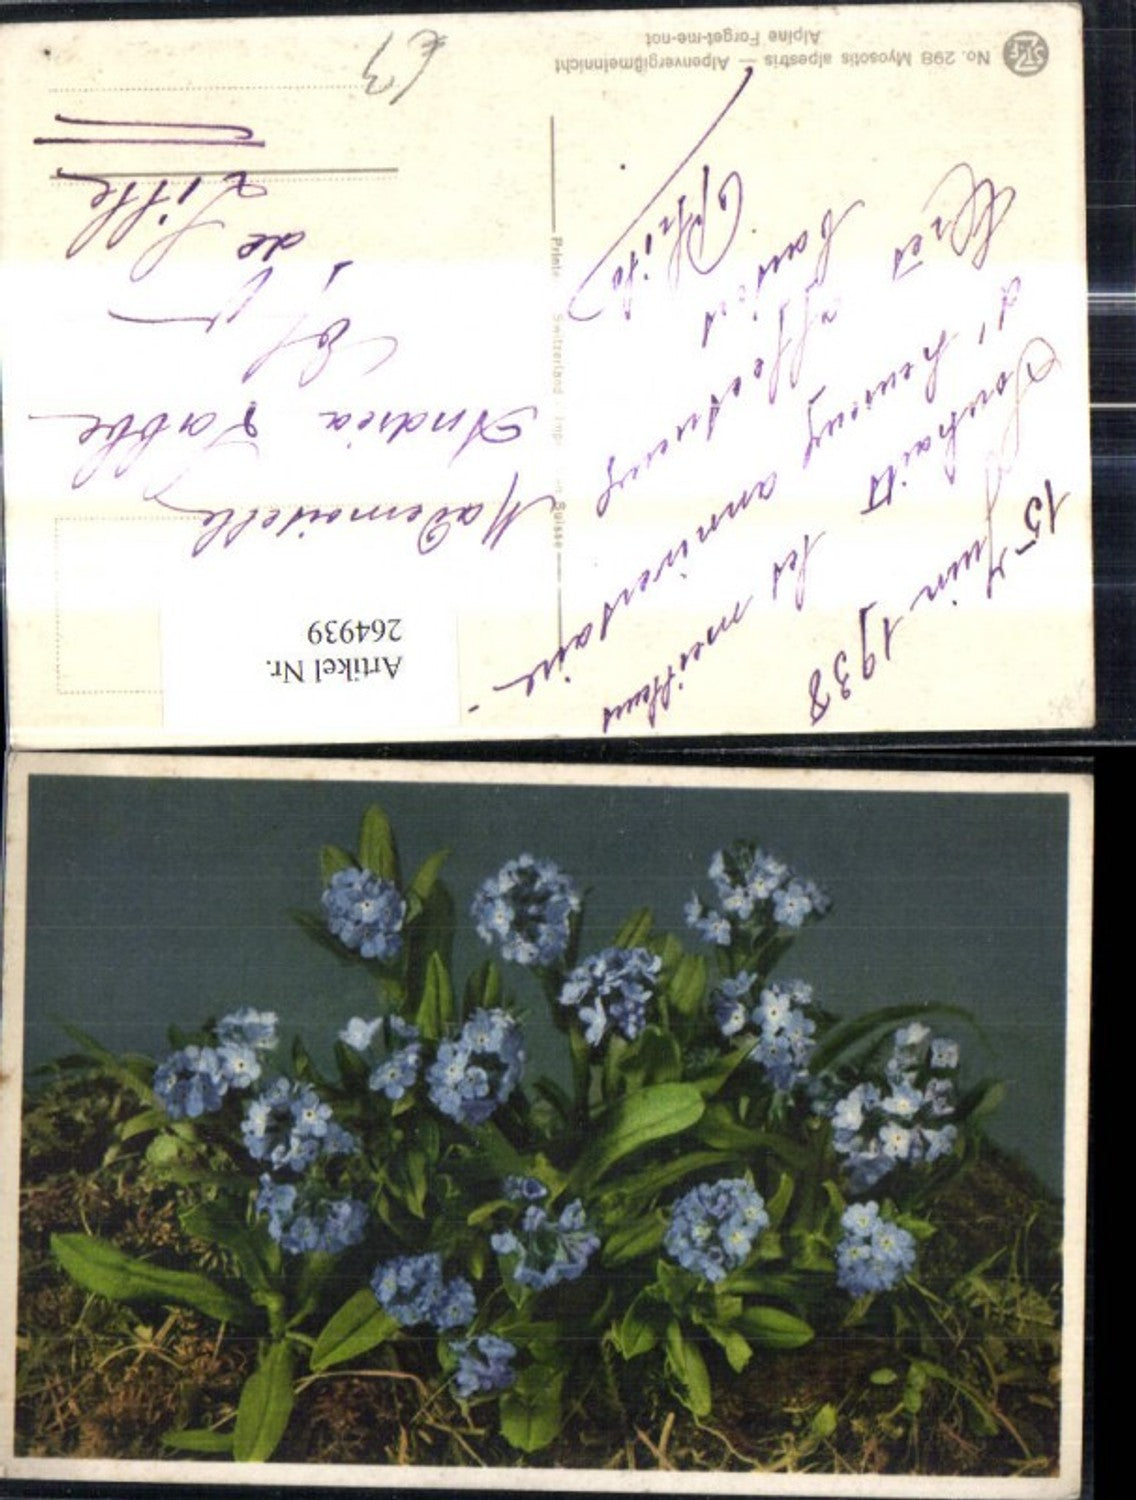 No. 298 Myosotis alpestris — Alpenvergißmeinnicht
Alpine Forget-me-not
15 Juin 1938
Souhaits
les meilleurs
d'heureux anniversaire
Affectueux
baisers
Mademoiselle
Andréa
de
Lille
Printed Switzerland - Imp. Suisse
Artikel Nr.
264939